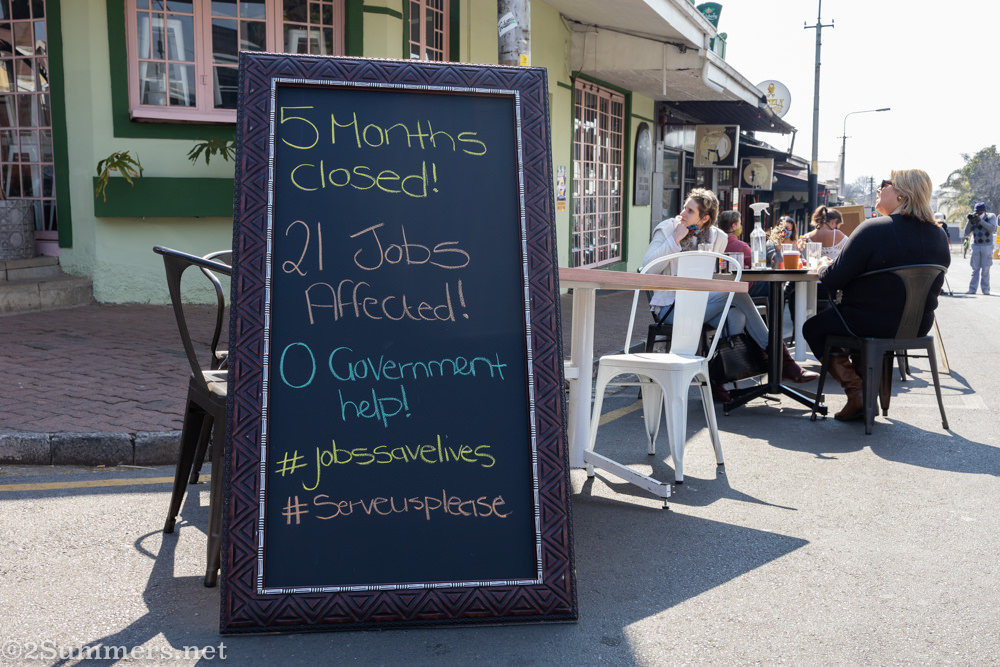 5 Months
closed!
21 Jobs
Affected!
0 Government
help!
#jobssavelives
#Serveusplease
©2Summers.net